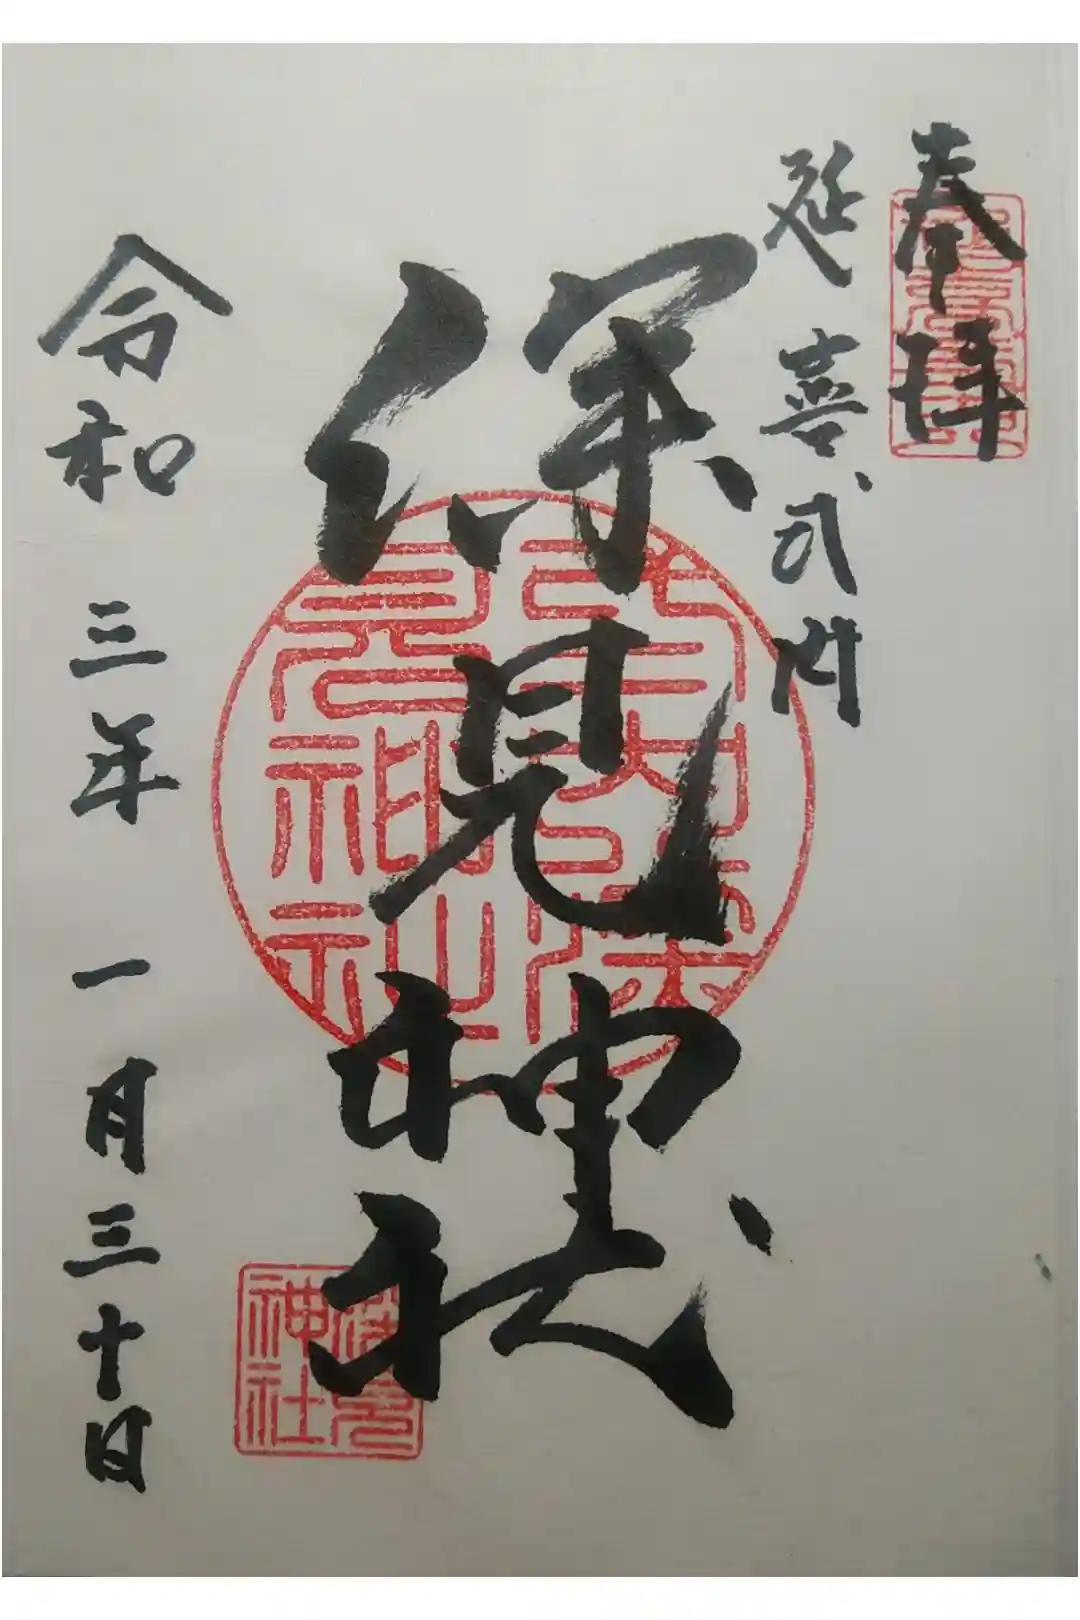 奉拝
延喜式内
深見神社
令和三年一月三十日
深見
神社